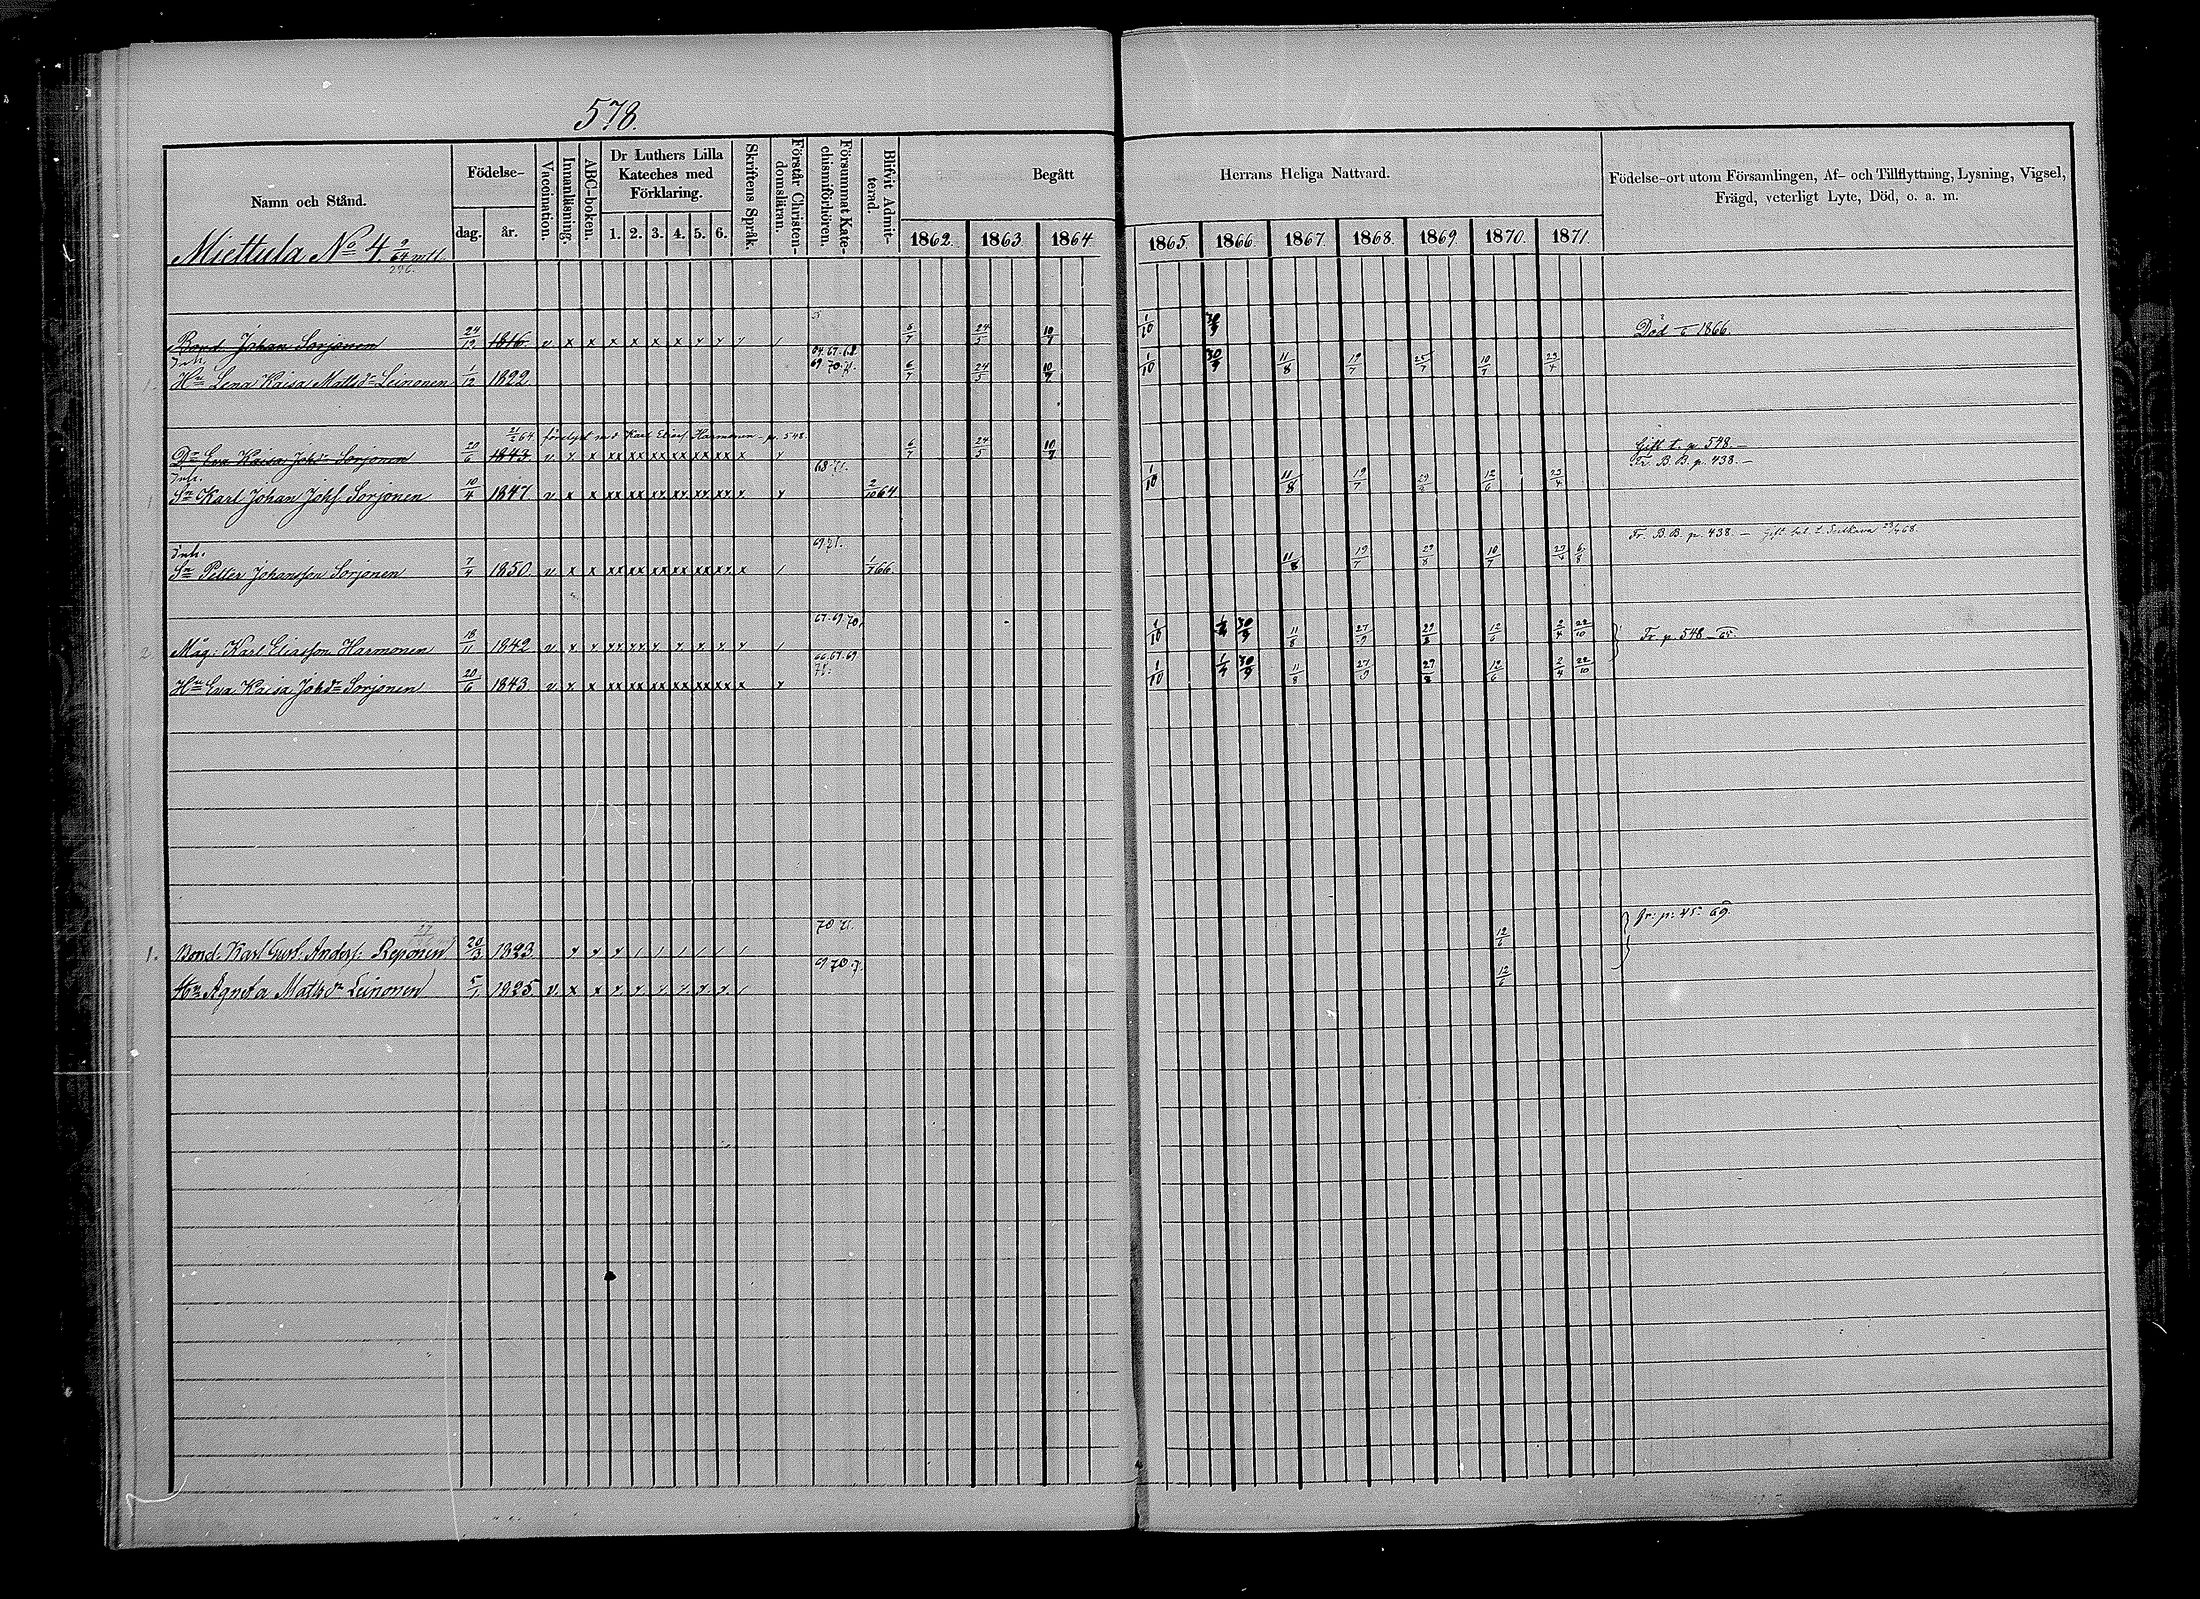 578.
Namn och Stånd.
Födelse-
dag.
år.
Vaccination.
Innanläsning.
ABC-boken.
Dr Luthers Lilla
Kateches med
Förklaring.
1. 2. 3. 4. 5. 6.
Skriftens Språk.
Förstår Christen-
domsläran.
Försummat Kate-
chismiförhören.
Blifvit Admit-
terad.
Begått
Herrans Heliga Nattvard.
1862. 1863. 1864. 1865. 1866. 1867. 1868. 1869. 1870. 1871.
Födelse-ort utom Församlingen, Af- och Tillflyttning, Lysning, Vigsel,
Frägd, veterligt Lyte, Död, o. a. m.
Miettula No 4. 9/64 mtl.
Bond. Johan Sorjonen 24/12 1816 v x x x x x x 6/7 24/5 10/7 1/10 30/9 Död 1866
Inh.
Hu Lena Kaisa Mattsdr Leinonen 1/12 1822 67. 68. 69. 70. 71. 6/7 24/5 10/7 1/10 30/9 11/8 19/7 25/7 10/7 23/4
21/2 64 förelyst med Karl Eliass Harmonen - p. 548
Dr Eva Kaisa Johdr Sorjonen 20/6 1843 v x x xx xx xx xx xx xx x 6/7 24/5 10/7 Gift t. p. 548.
Inh.
Sn Karl Johan Johs Sorjonen 10/4 1847 v x x xx xx xx xx xx xx 68. 71. 2/10 64 1/10 11/8 19/7 29/8 12/6 23/4 Fr. B. B. p. 438.
Inh.
Sn Petter Johansson Sorjonen 7/4 1850 v x x xx xx xx xx xx xx x 69. 71. 1/7 66 11/8 19/7 29/8 10/7 23/4 6/8 Fr. B. B. p. 438.
2. Måg: Karl Eliasson Harmonen 18/11 1842 v x 67. 69. 70. 1/10 1/4 30/9 11/8 27/9 29/8 12/6 2/4 22/10 Fr. p. 548 - 65.
Hu Eva Kaisa Johdr Sorjonen 20/6 1843 v x x xx xx xx xx xx xx x 66. 67. 69. 71. 1/10 1/4 30/9 11/8 27/9 29/8 12/6 2/4 22/10
1. Bond. Karl Gust. Anders: Reponen 20/3 1823 70. 71. 12/6 fr: p: 45. 69.
Hu Agneta Mattsdr Leinonen 5/1 1825 v. x x 12/6